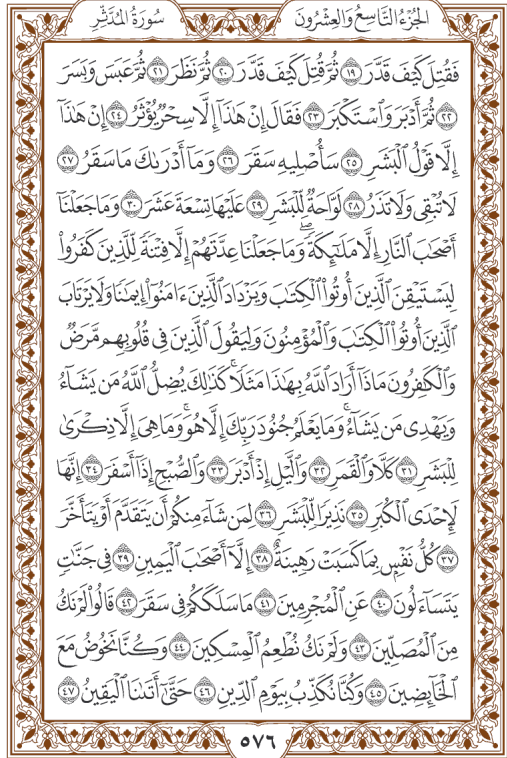 الجُزْءُ التَّاسِعُ وَالعِشْرُونَ سُورَةُ المُدَّثِّرِ
فَقُتِلَ كَيْفَ قَدَّرَ ١٩ ثُمَّ قُتِلَ كَيْفَ قَدَّرَ ٢٠ ثُمَّ نَظَرَ ٢١ ثُمَّ عَبَسَ وَبَسَرَ
٢٢ ثُمَّ أَدْبَرَ وَٱسْتَكْبَرَ ٢٣ فَقَالَ إِنْ هَٰذَآ إِلَّا سِحْرٌ يُؤْثَرُ ٢٤ إِنْ هَٰذَآ
إِلَّا قَوْلُ ٱلْبَشَرِ ٢٥ سَأُصْلِيهِ سَقَرَ ٢٦ وَمَآ أَدْرَىٰكَ مَا سَقَرُ ٢٧
لَا تُبْقِى وَلَا تَذَرُ ٢٨ لَوَّاحَةٌ لِّلْبَشَرِ ٢٩ عَلَيْهَا تِسْعَةَ عَشَرَ ٣٠ وَمَا جَعَلْنَآ
أَصْحَٰبَ ٱلنَّارِ إِلَّا مَلَٰٓئِكَةً ۙ وَمَا جَعَلْنَا عِدَّتَهُمْ إِلَّا فِتْنَةً لِّلَّذِينَ كَفَرُوا۟
لِيَسْتَيْقِنَ ٱلَّذِينَ أُوتُوا۟ ٱلْكِتَٰبَ وَيَزْدَادَ ٱلَّذِينَ ءَامَنُوٓا۟ إِيمَٰنًا وَلَا يَرْتَابَ
ٱلَّذِينَ أُوتُوا۟ ٱلْكِتَٰبَ وَٱلْمُؤْمِنُونَ وَلِيَقُولَ ٱلَّذِينَ فِى قُلُوبِهِم مَّرَضٌ
وَٱلْكَٰفِرُونَ مَاذَآ أَرَادَ ٱللَّهُ بِهَٰذَا مَثَلًا ۚ كَذَٰلِكَ يُضِلُّ ٱللَّهُ مَن يَشَآءُ
وَيَهْدِى مَن يَشَآءُ ۚ وَمَا يَعْلَمُ جُنُودَ رَبِّكَ إِلَّا هُوَ ۚ وَمَا هِىَ إِلَّا ذِكْرَىٰ
لِلْبَشَرِ ٣١ كَلَّا وَٱلْقَمَرِ ٣٢ وَٱلَّيْلِ إِذْ أَدْبَرَ ٣٣ وَٱلصُّبْحِ إِذَآ أَسْفَرَ ٣٤ إِنَّهَا
لَإِحْدَى ٱلْكُبَرِ ٣٥ نَذِيرًا لِّلْبَشَرِ ٣٦ لِمَن شَآءَ مِنكُمْ أَن يَتَقَدَّمَ أَوْ يَتَأَخَّرَ
٣٧ كُلُّ نَفْسٍۭ بِمَا كَسَبَتْ رَهِينَةٌ ٣٨ إِلَّآ أَصْحَٰبَ ٱلْيَمِينِ ٣٩ فِى جَنَّٰتٍ
يَتَسَآءَلُونَ ٤٠ عَنِ ٱلْمُجْرِمِينَ ٤١ مَا سَلَكَكُمْ فِى سَقَرَ ٤٢ قَالُوا۟ لَمْ نَكُ
مِنَ ٱلْمُصَلِّينَ ٤٣ وَلَمْ نَكُ نُطْعِمُ ٱلْمِسْكِينَ ٤٤ وَكُنَّا نَخُوضُ مَعَ
ٱلْخَآئِضِينَ ٤٥ وَكُنَّا نُكَذِّبُ بِيَوْمِ ٱلدِّينِ ٤٦ حَتَّىٰٓ أَتَىٰنَا ٱلْيَقِينُ ٤٧
٥٧٦